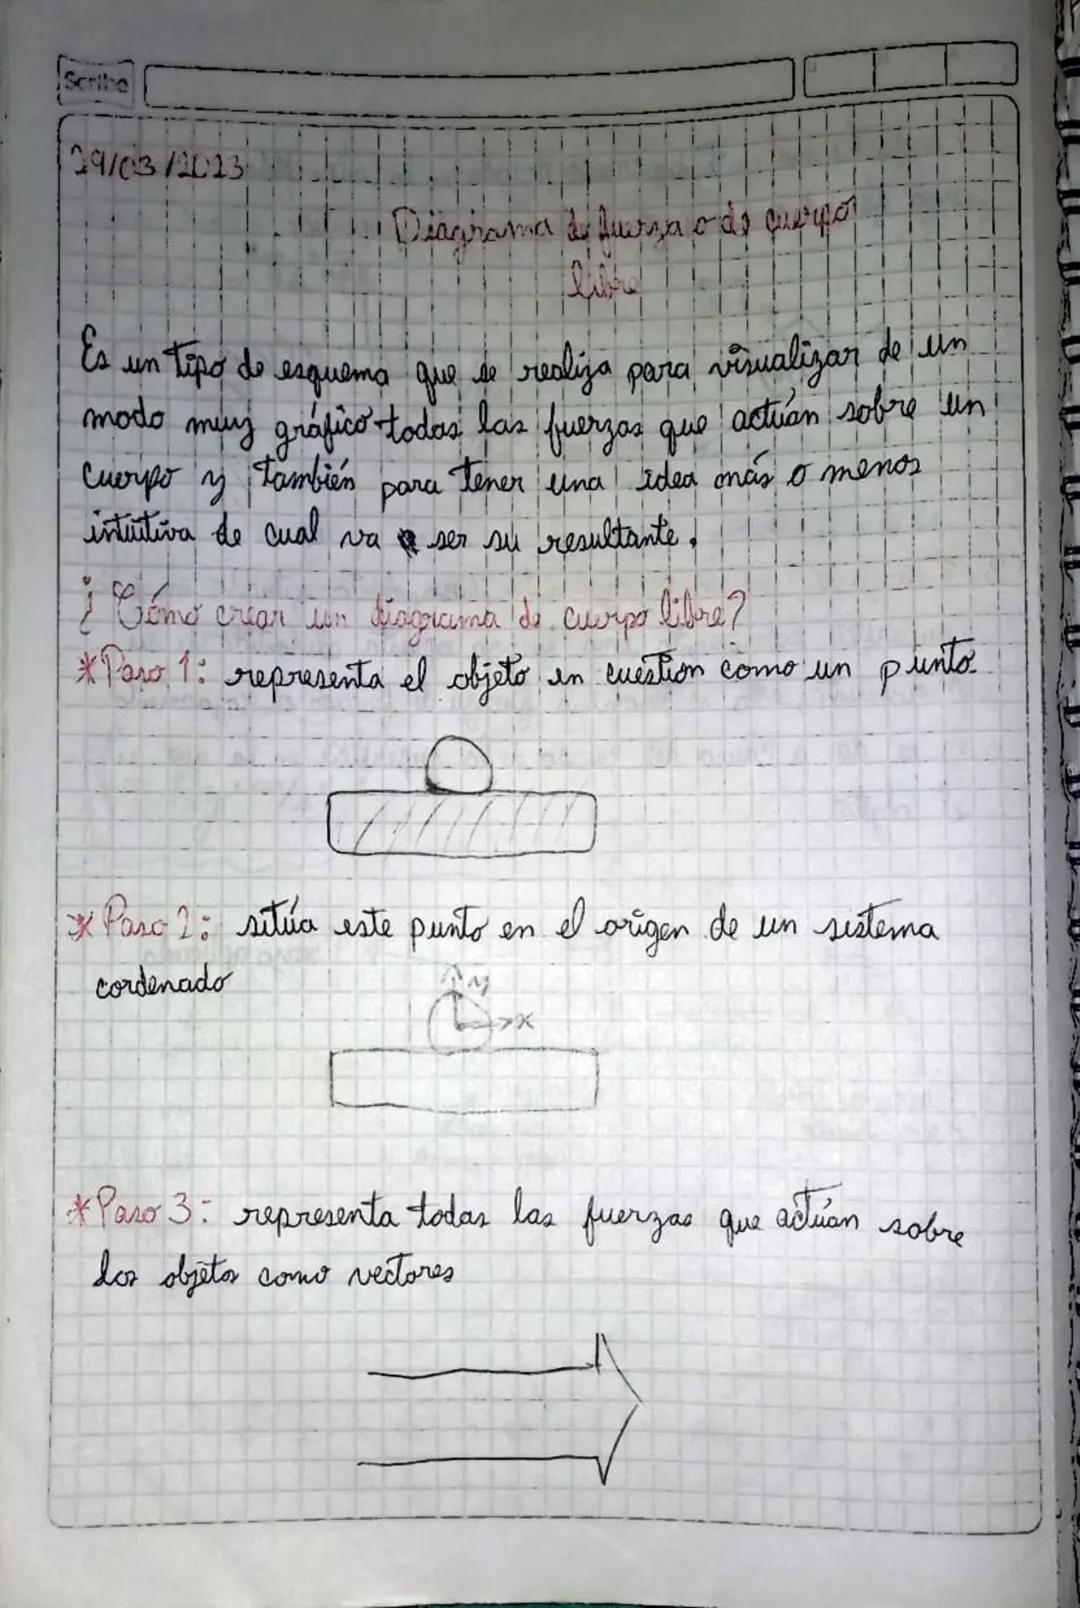 Scribe
29/03/2023
Diagrama de fuerza o de cuerpo
libre
Es un tipo de esquema que se realiza para visualizar de un
modo muy gráfico todas las fuerzas que actúan sobre un
cuerpo y también para tener una idea más o menos
intuitiva de cual va a ser su resultante.
¿Cómo crear un diagrama de cuerpo libre?
*Paso 1: representa el objeto en cuestion como un punto.
*Paso 2: sitúa este punto en el origen de un sistema
cordenado
y
x
*Paso 3: representa todas las fuerzas que actúan sobre
los objetos como vectores